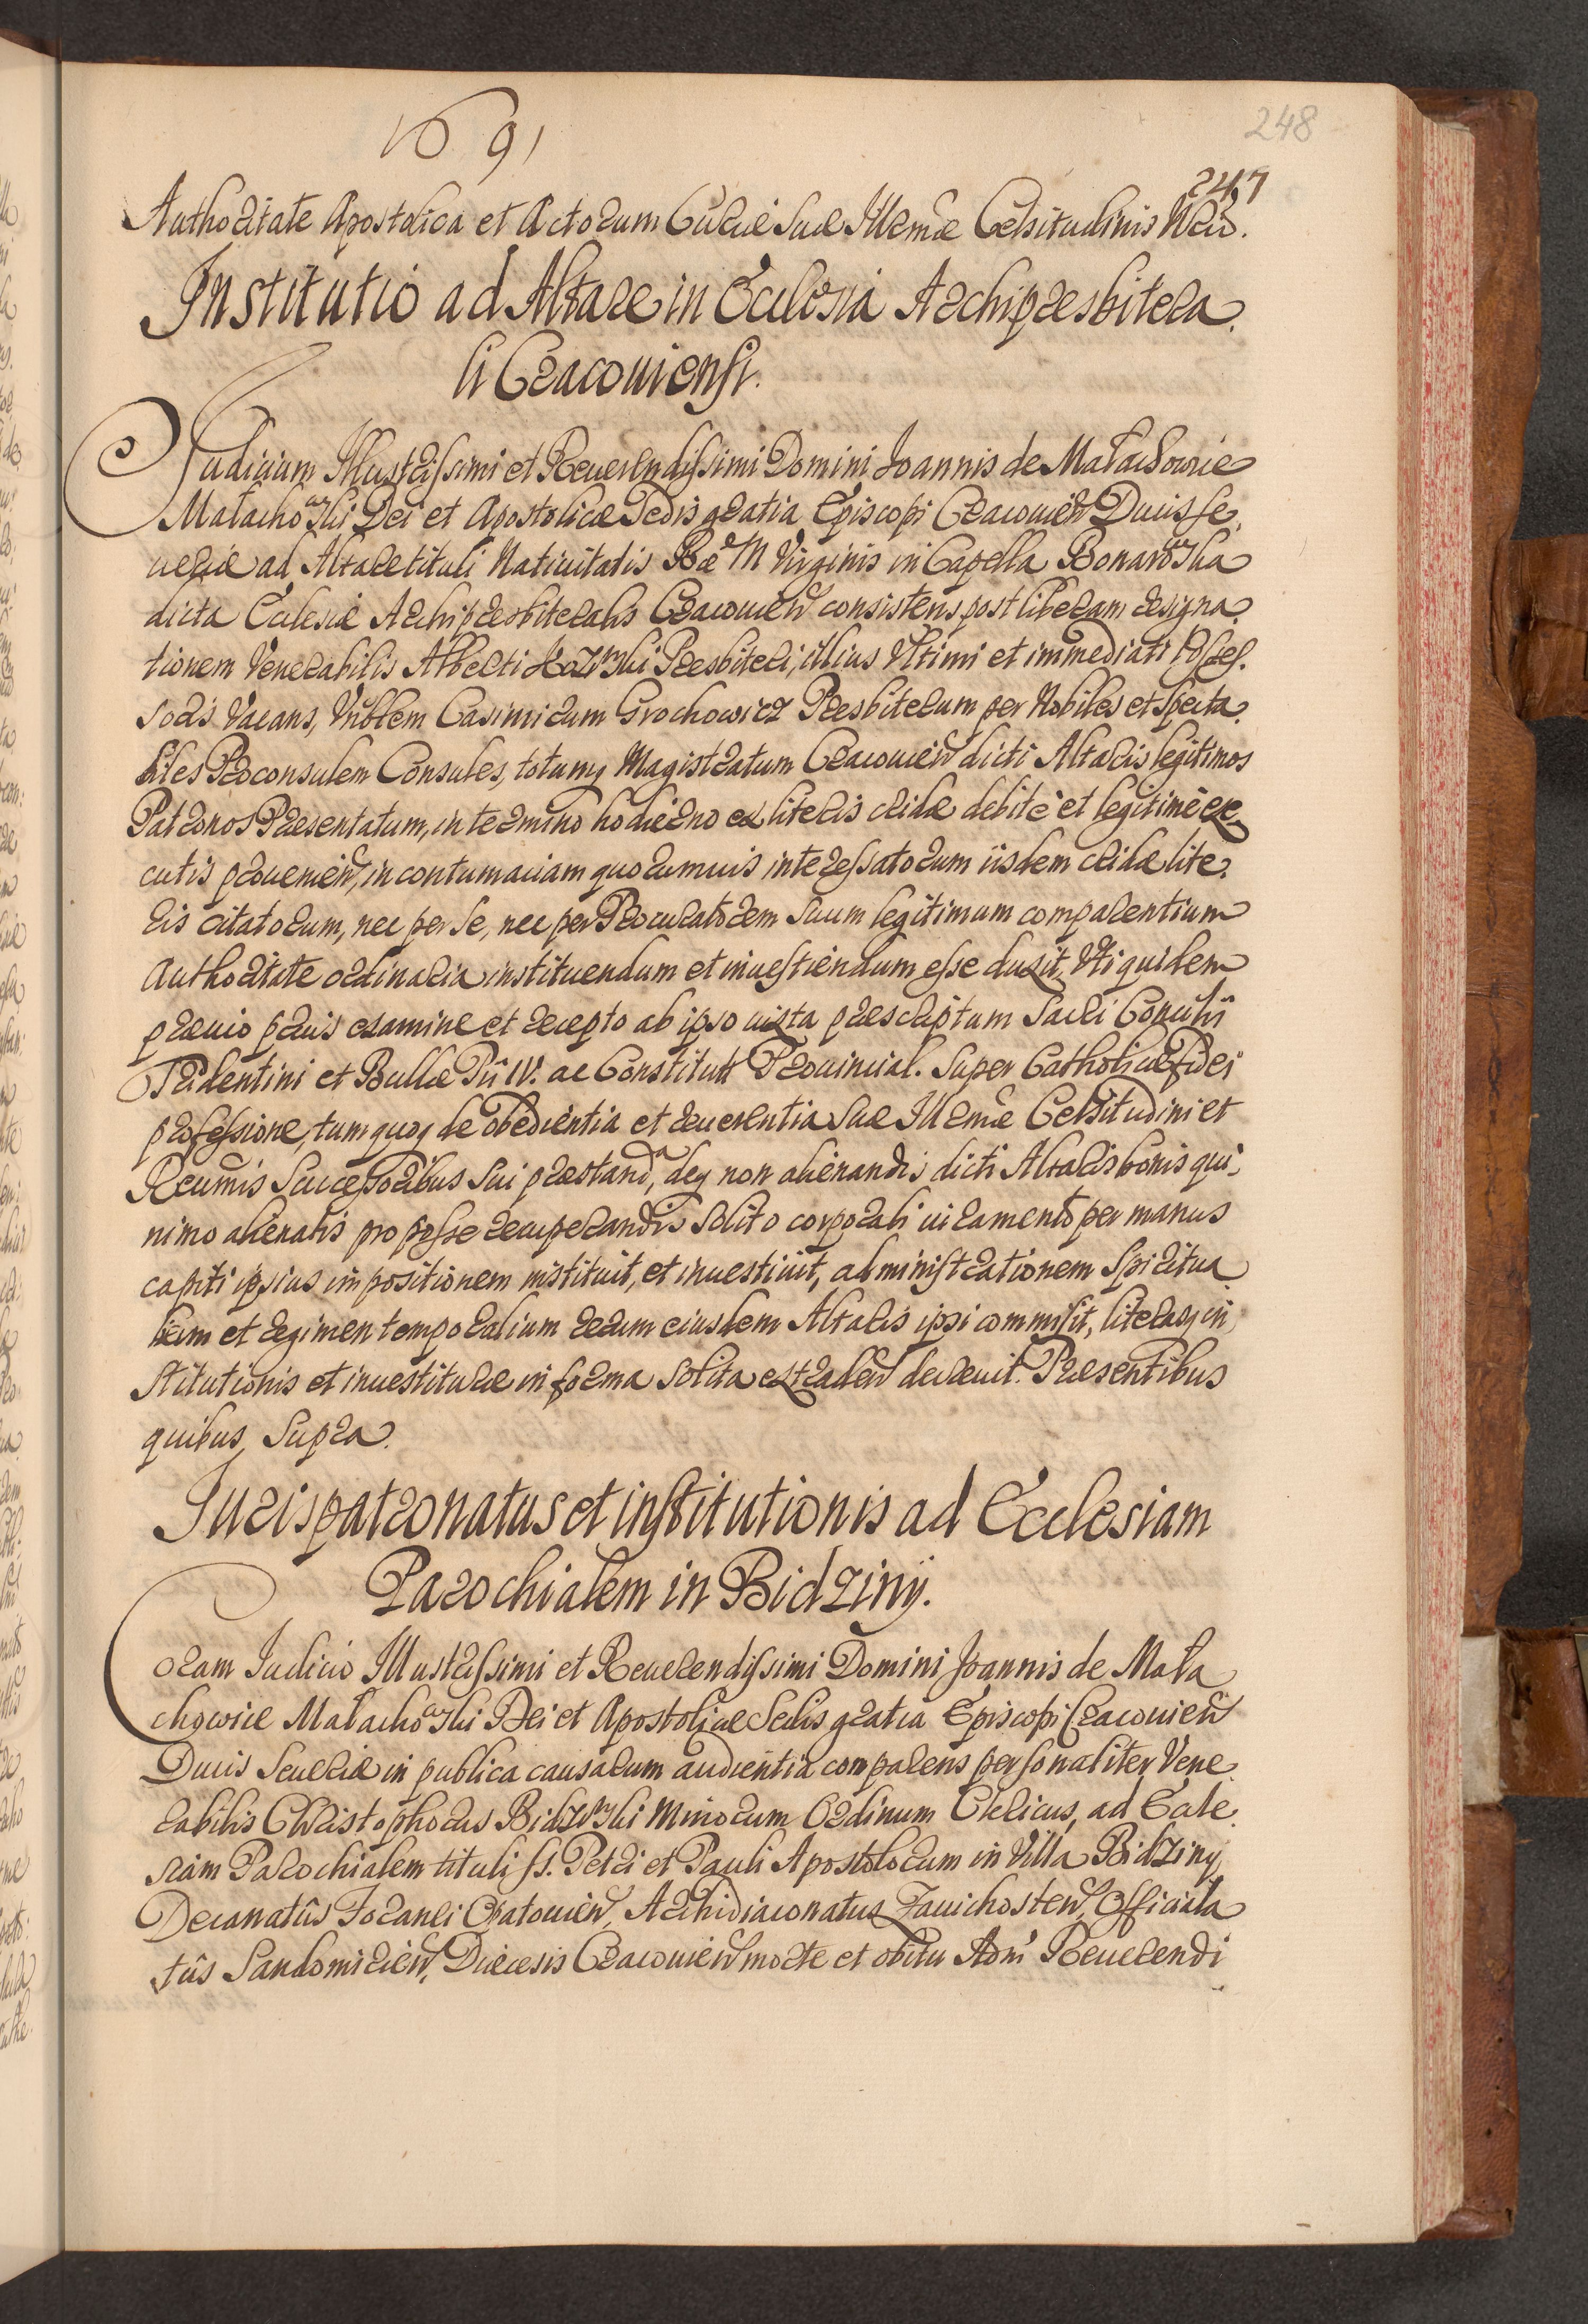 1691
248
247
Authoritate Apostolica et Actorum Curiæ Suæ Illemæ Celsitudinis
Institutio ad Altare in Ecclesia Archipresbitera.
li Cracouiensi.
Judicium Illustrissimi et Reuerendissimi Domini Joannis de Małachowice
Małachowski Dei et Apostolicæ Sedis gratia Episcopi Cracouien Ducis Se,
ueriæ ad Altare tituli Natiuitatis Bæ M Virginis in Capella Bonarowska
dicta Ecclesiæ Archipresbiteralis Cracouien consistens post liberam resigna,
tionem Venerabilis Alberti Presbiteri, illius Vltimi et immediati posses,
soris Vacans, Vnblem Casimirum Grochowicz Presbiterum per Nobiles et Specta,
biles Proconsulem Consules, totumq Magistratum Cracouien dicti Altaris legitimos
Patronos Præsentatum, in termino hodierno ex literis cridæ debitè et legitimè exe,
cutis prouenien, in contumaciam quorumuis interessatorum iisdem cridæ lite,
ris citatorum, nec per se, nec per Procuratorem Suum legitimum comparentium
Authoritate ordinaria instituendum et inuestiendum esse duxit, Vti quidem
præuio præuis examine et recepto ab ipso iuxta præscriptum Sacri Concilii
Tridentini et Bullæ Pii IV. ac Constitutt Prouincial. Super Catholicæ fidei
professione, tum quoq de obedientia et reuerentia Suæ Illemæ Celsitudini et
Reumis Successoribus Sui præstanda, deq non alienandis dicti Altaris bonis qui,
nimo alienatis pro posse recuperandis Solito corporali iuramento per manus
capiti ipsius impositionem instituit, et inuestiuit, administrationem Spiritua
lium et regimen temporalium rerum eiusdem Altaris ipsi commisit, literasq in
stitutionis et inuestituræ in forma Solita extraden decreuit. Præsentibus
quibus Supra.
Juris patronatus et institutionis ad Ecclesiam
Parochialem in Bidziny.
Coram Iudicio Illustrissimi et Reuerendissimi Domini Joannis de Mała
chowice Małachowski Dei et Apostolicæ Sedis gratia Episcopi Cracouien
Ducis Seueriæ in publica causarum audientia comparens personaliter Vene
rabilis Christophorus Bidzinski Minorum Ordinum Clericus, ad Eccle
siam Parochialem tituli SS. Petri et Pauli Apostolorum in Villa Bidziny
Decanatûs Foranei Opatouien, Archidiaconatus Zauichosten, Officiala
tûs Sandomirien, Diæcesis Cracouien morte et obitu Adm Reuerendi